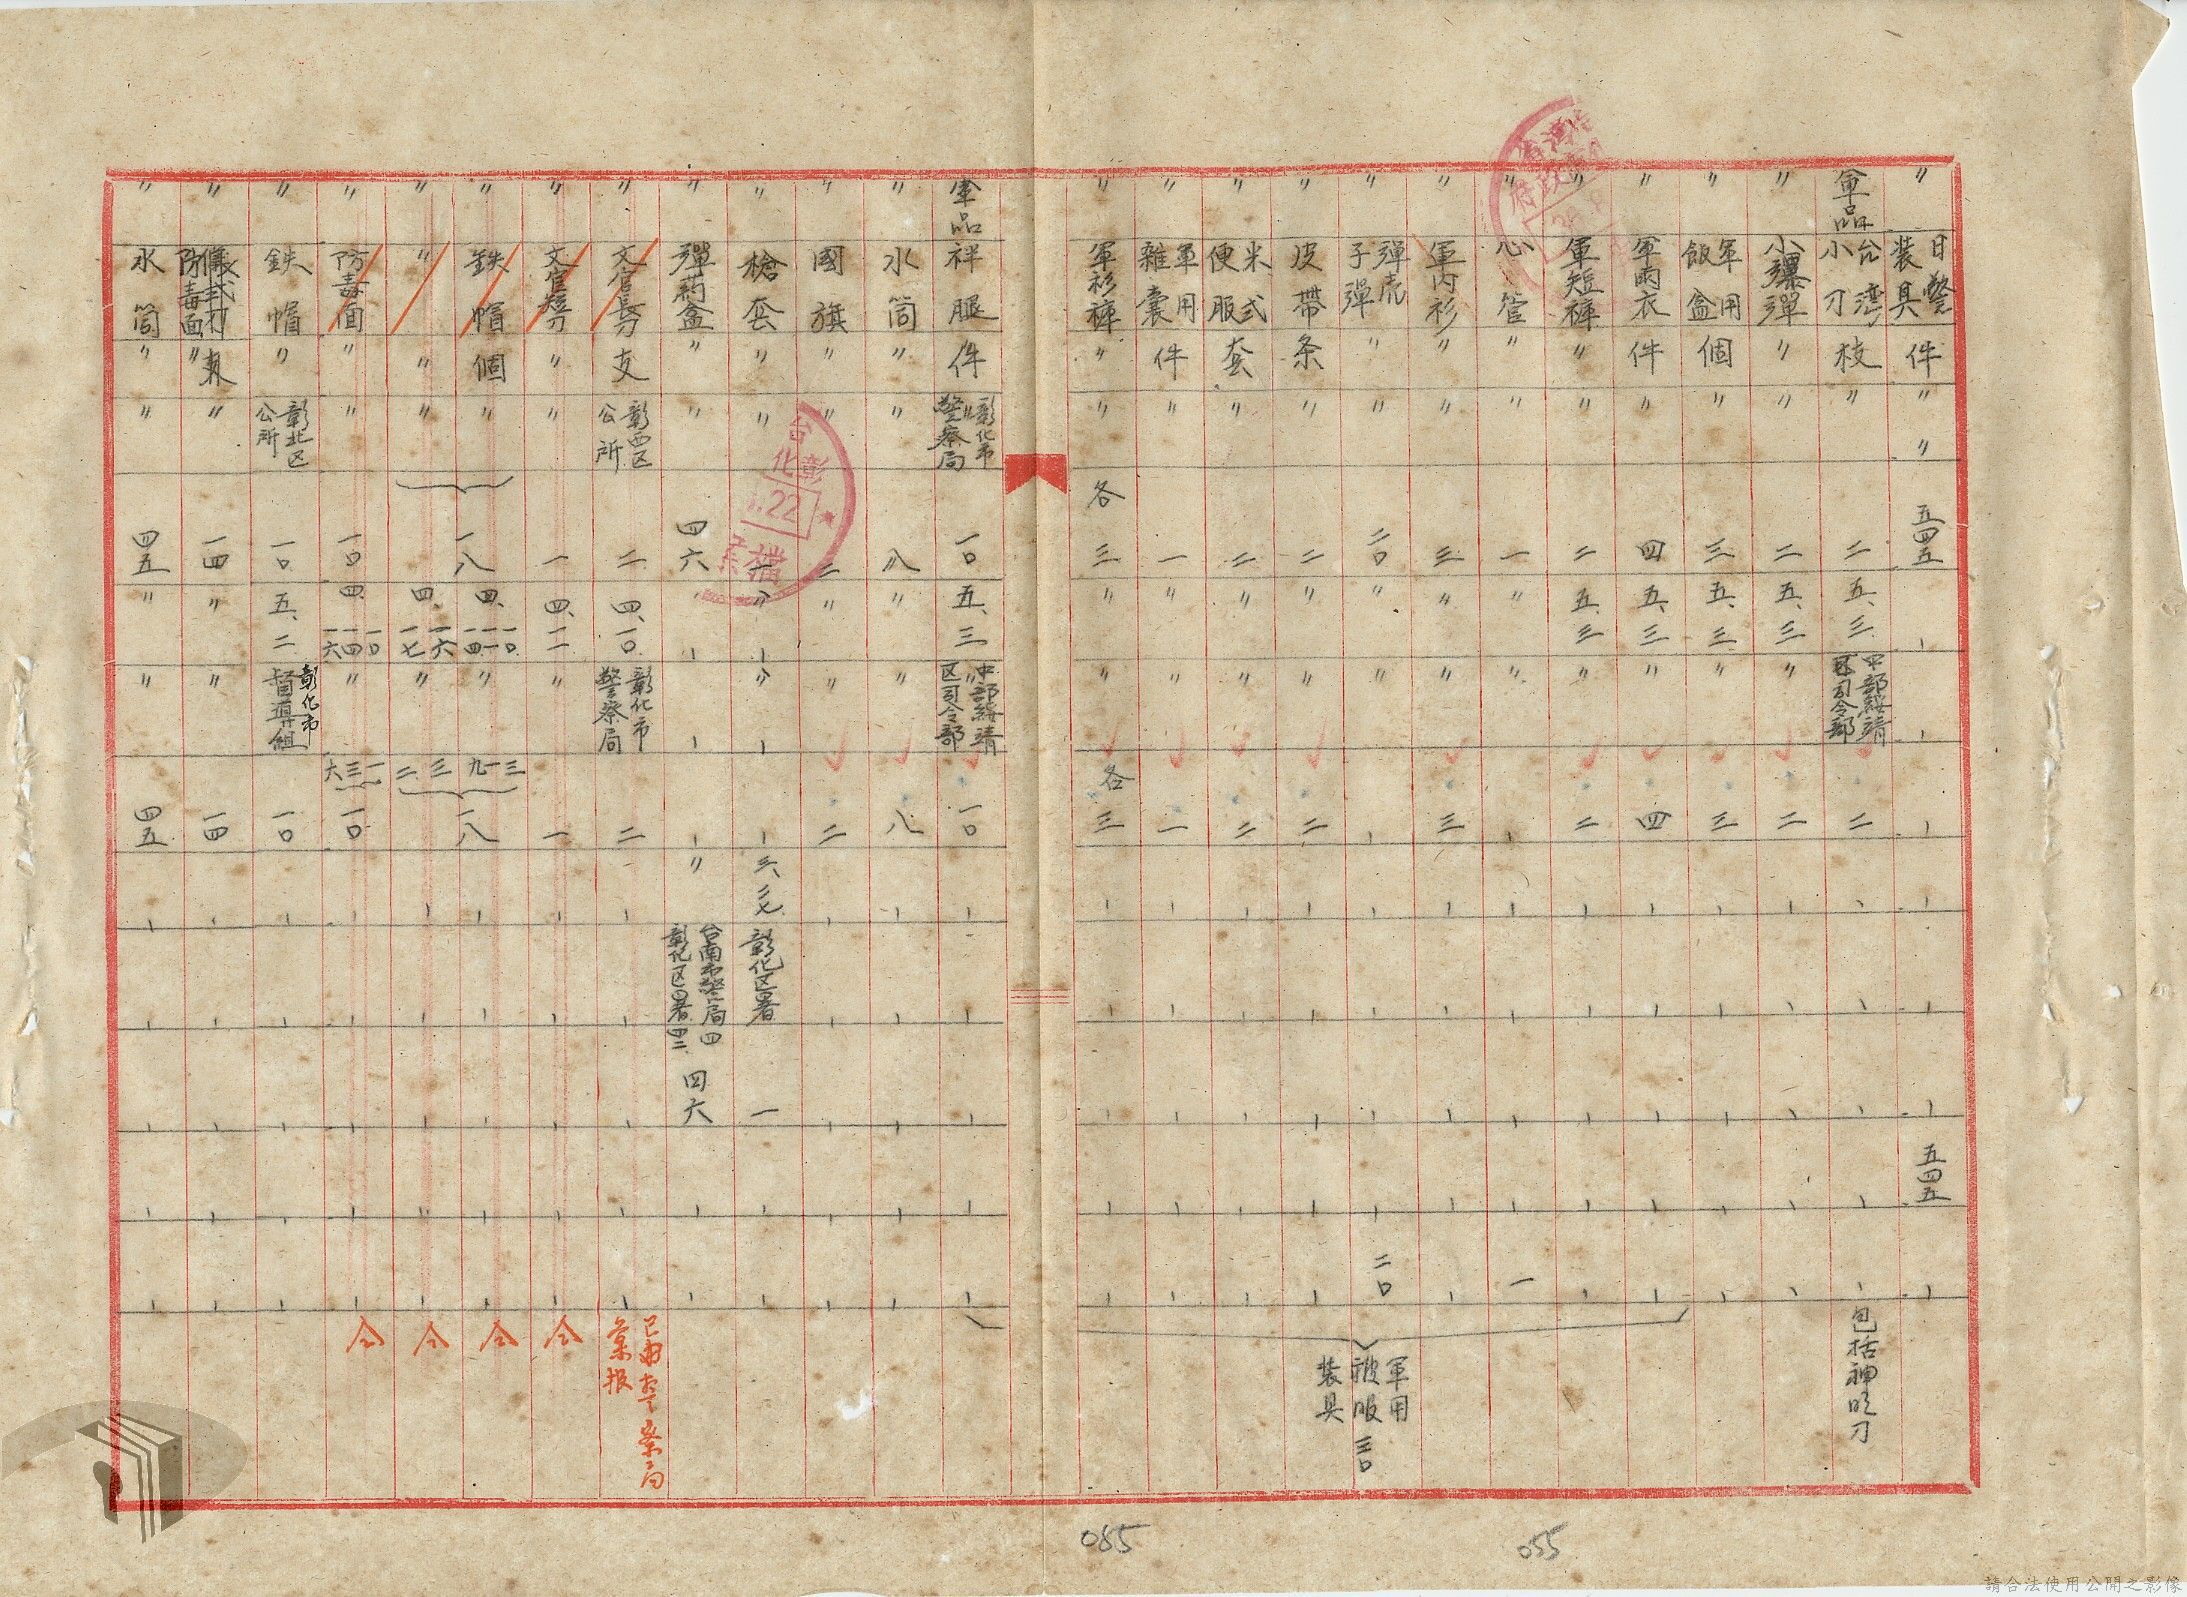 〃 日警裝具 件 〃 〃 五四五 ー ー ー ー ー ー 五四五 ー
軍品 台灣小刀 枝 〃 二 五、三 中部綏靖区司令部 二 包括神明刀
〃 小爆彈 〃 〃 二 五、三 〃 二
〃 軍用飯盒 個 〃 三 五、三 〃 三
〃 軍雨衣 件 〃 四 五、三 〃 四
〃 軍短褲 〃 〃 二 五、三 〃 二
〃 心管 〃 〃 一 〃 〃 ー 一
〃 軍內衫 〃 〃 三 〃 〃 三
〃 彈売子彈 〃 二〇 〃 〃 ー 二〇
〃 皮帶 条 〃 二 〃 〃 二
〃 米式便服 套 〃 二 〃 〃 二
〃 軍用雜囊 件 〃 一 〃 〃 一
〃 軍衫褲 〃 〃 各三 〃 〃 各三
軍用被服裝具 三〇
軍品 祥腿 件 彰化市警察局 一〇 五、三 中部綏靖区司令部 一〇
〃 水筒 〃 〃 八 〃 〃 八
〃 國旗 〃 〃 二 〃 〃 二
〃 槍套 〃 〃 一 〃 〃 ー 三、二七 彰化区署 一
〃 彈葯盒 〃 四六 ー ー ー 〃 台南市警局四 彰化区署四二 四六
〃 文官長刀 支 彰西区公所 二 四、一〇 彰化市警察局 二 已由警察局彙报
〃 文官短刀 〃 〃 一 四、一一 〃 一 仝
〃 鉄帽 個 〃 一八 四、一〇 一一 一四 〃 三 一 九 一八 仝
〃 〃 〃 〃 四、一六 一七 〃 三 二 仝
〃 防毒面 〃 〃 一〇 四、一〇 一四 一六 〃 一 三 六 一〇 仝
〃 鉄帽 〃 彰北区公所 一〇 五、二 彰化市督導組 一〇
〃 防毒面 〃 〃 一四 〃 〃 一四
〃 水筒 〃 〃 四五 〃 〃 四五
台灣省 政府
彰化
.22
檔
085
055
請合法使用公開之影像